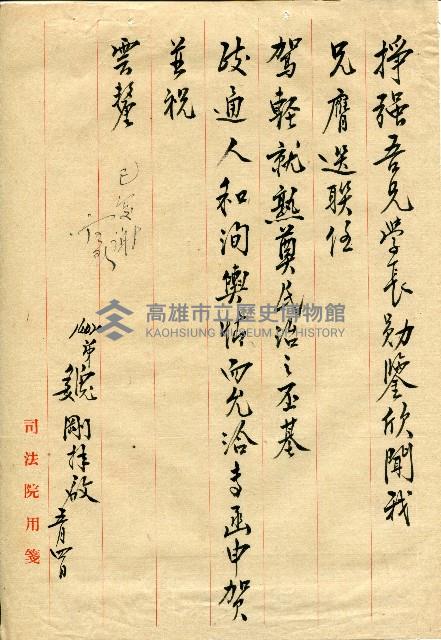 掙強吾兄學長勛鑒欣聞我
兄膺選聯任
駕輕就熟奠民治之丕基
政通人和洵輿情而允洽專函申賀
並祝
雲釐
已復謝
弟
魏
剛拜啟
五月四日
司法院用箋
高雄市立歷史博物館
KAOHSIUNG MUSEUM OF HISTORY